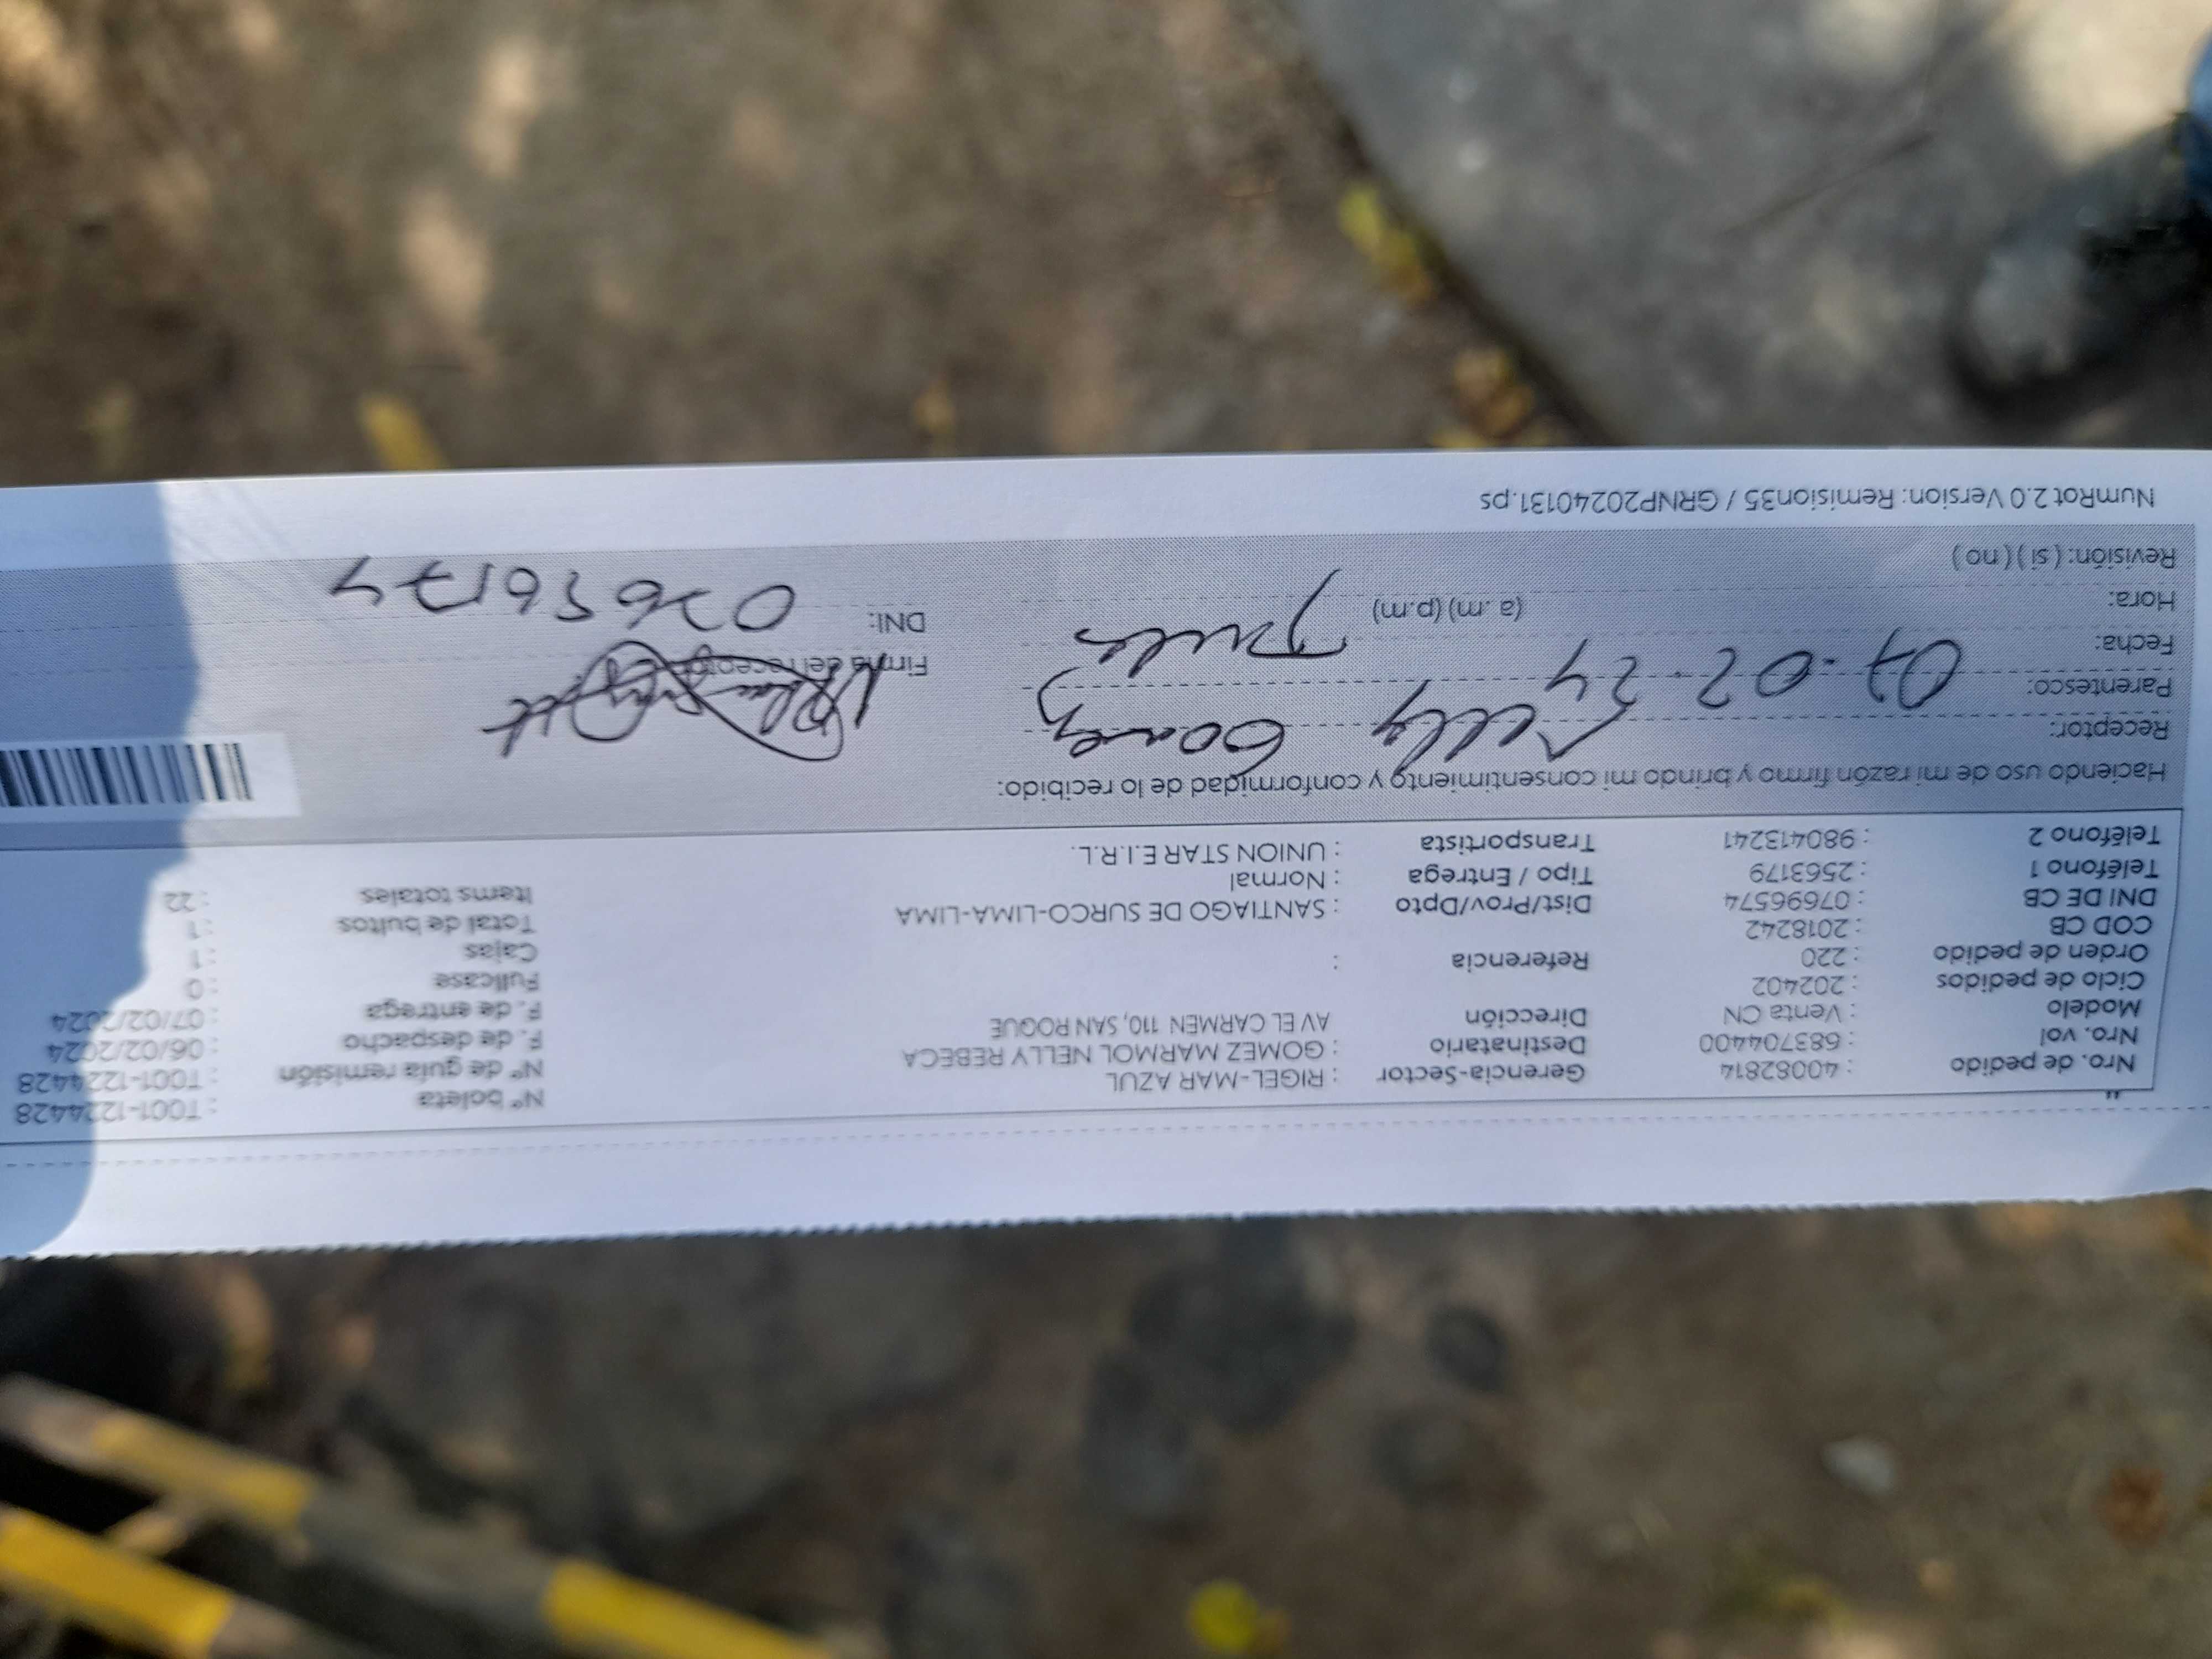 Nro. de pedido : 40082814 Gerencia-Sector : RIGEL-MAR AZUL Nº boleta : T001-1224428
Nro. vol : 683704400 Destinatario : GOMEZ MARMOL NELLY REBECA Nº de guía remisión : T001-1224428
Modelo : Venta CN Dirección AV EL CARMEN 110, SAN ROQUE F. de despacho : 06/02/2024
Ciclo de pedidos : 202402 F. de entrega : 07/02/2024
Orden de pedido : 220 Referencia : Fullcase : 0
COD CB : 2018242 Cajas : 1
DNI DE CB : 07696574 Dist/Prov/Dpto : SANTIAGO DE SURCO-LIMA-LIMA Total de bultos : 1
Teléfono 1 : 2563179 Tipo / Entrega : Normal Items totales : 22
Teléfono 2 : 980413241 Transportista : UNION STAR E.I.R.L.
Haciendo uso de mi razón firmo y brindo mi consentimiento y conformidad de lo recibido:
Receptor: Nelly Gomez
Parentesco:
Firma del receptor
Fecha: 07-02-24
Hora: (a .m) (p.m) DNI:
Revisión: ( si ) ( no )
NumRot 2.0 Version: Remision35 / GRNP20240131.ps